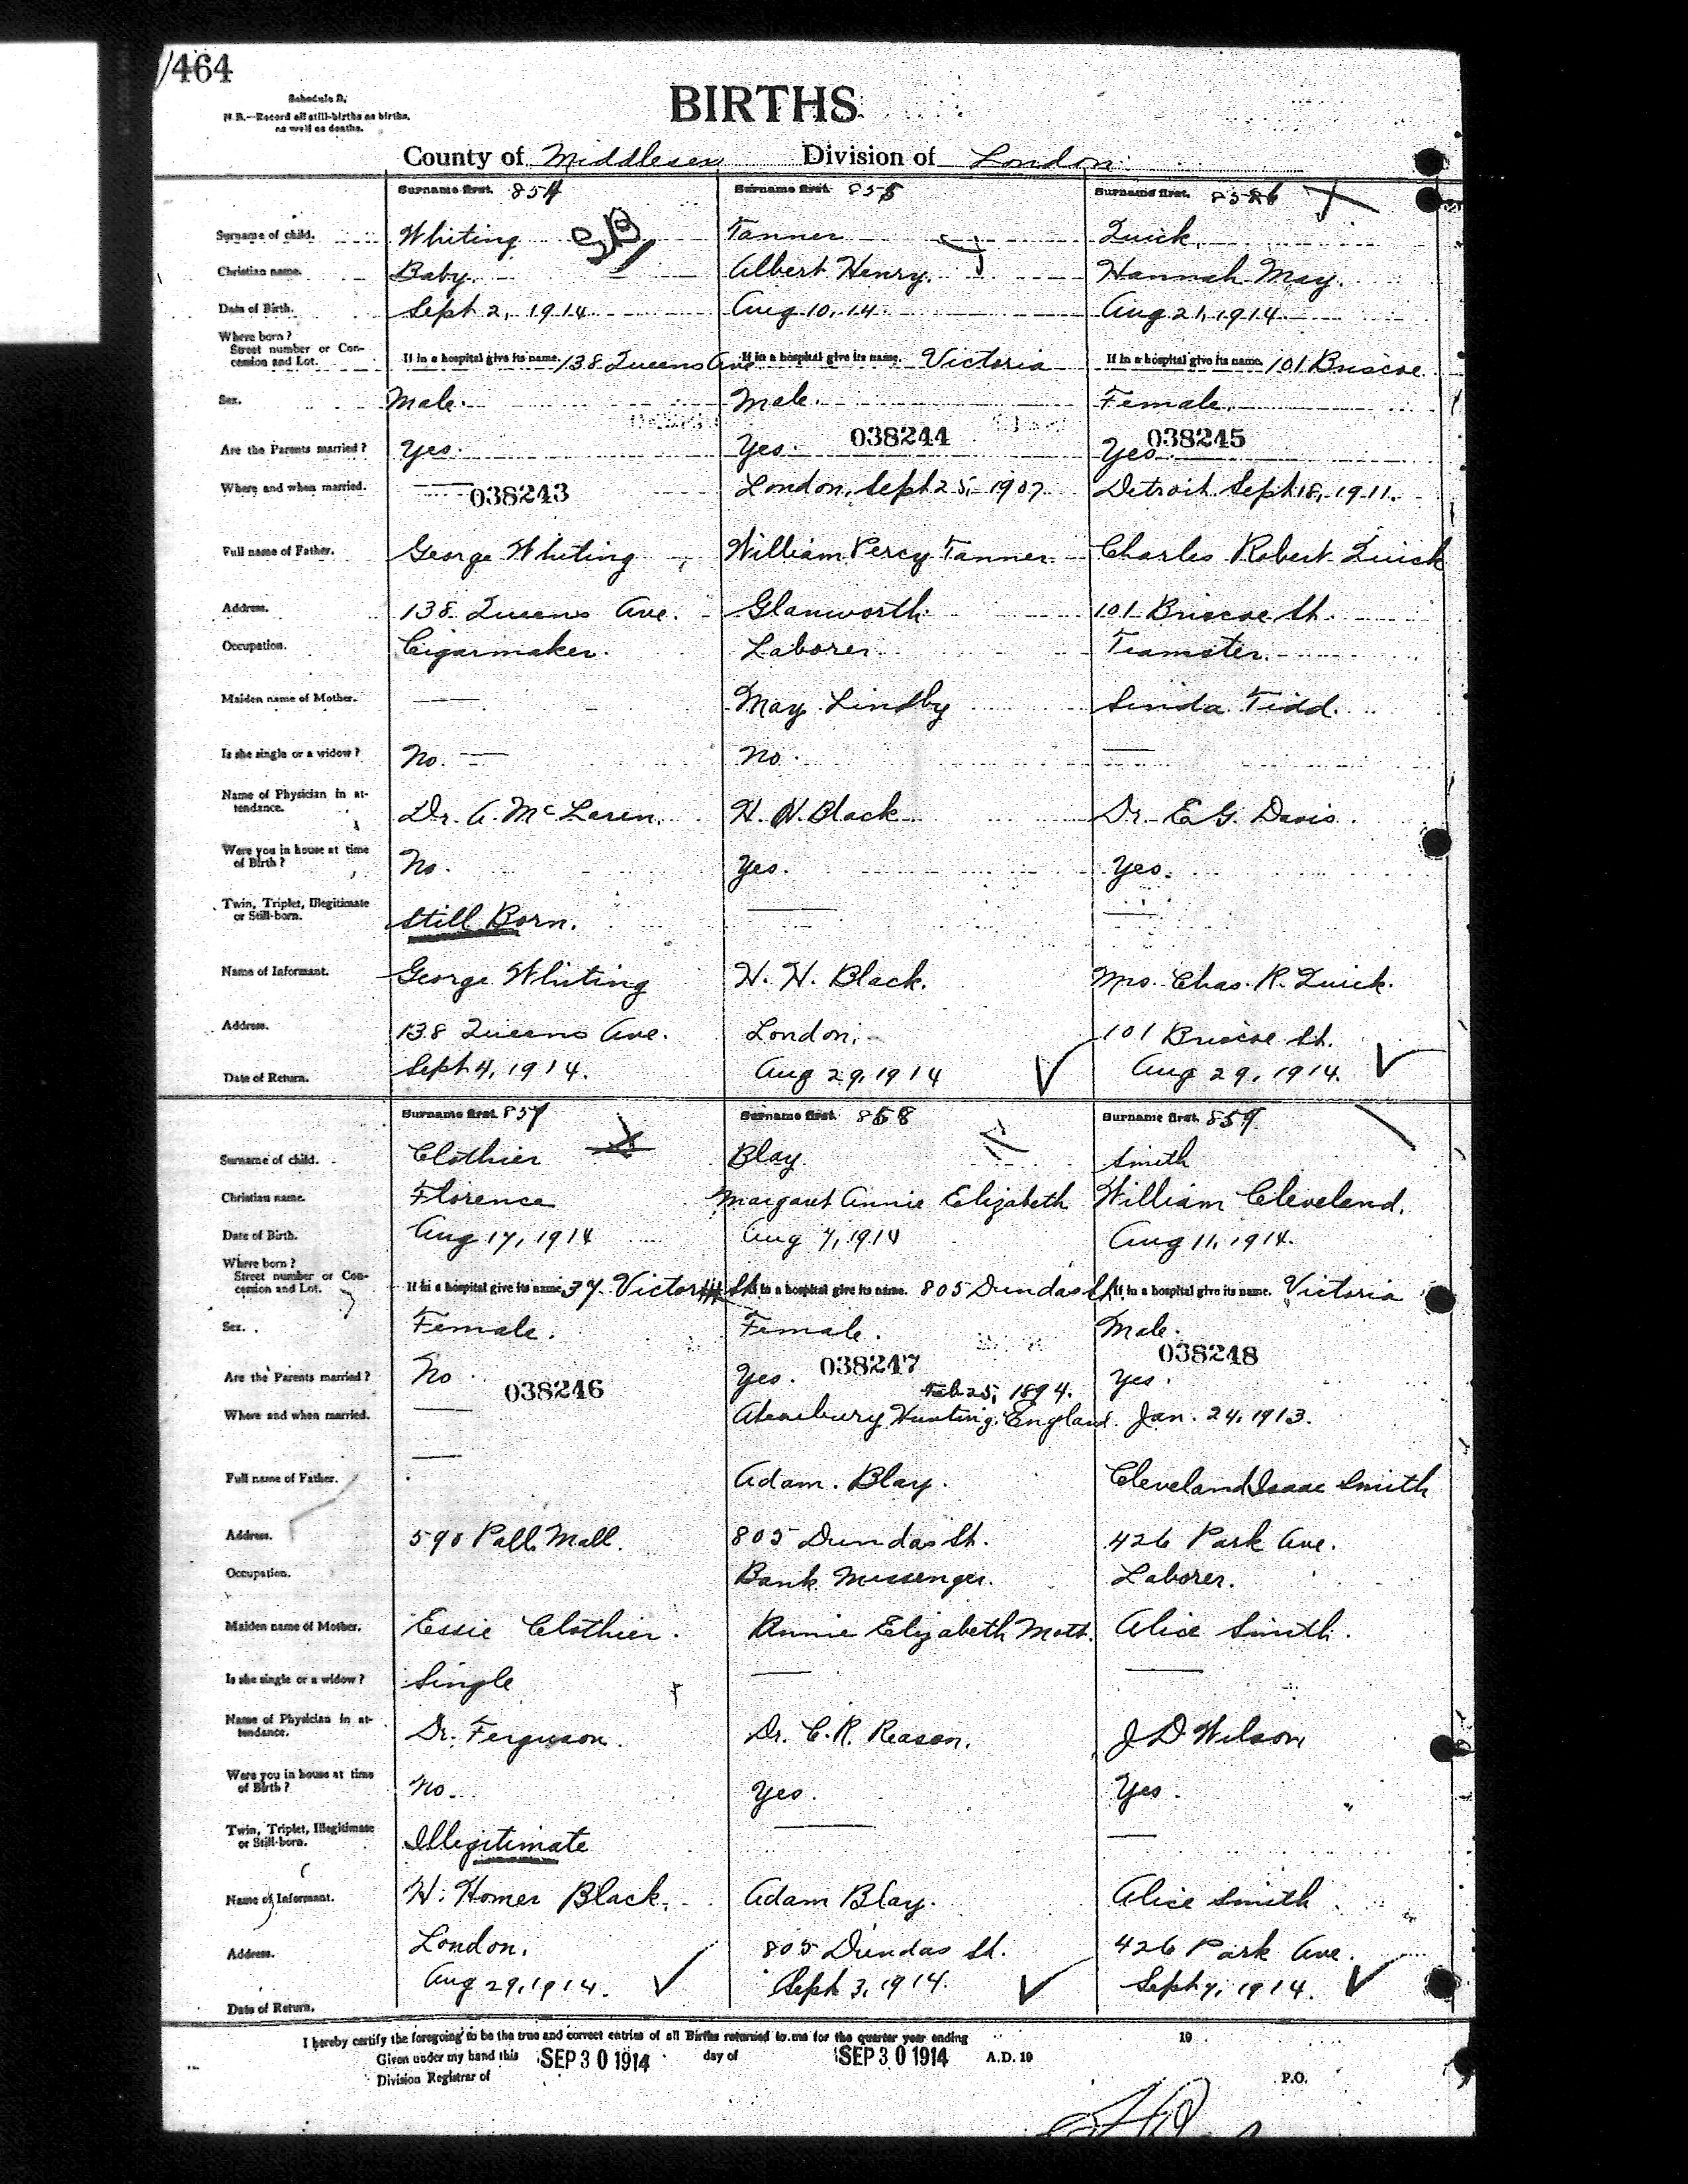 /464
Schedule B.
N.B.—Record all still-births as births,
as well as deaths.
BIRTHS
County of Middlesex Division of London
Surname first. 854 Surname first. 855 Surname first. 856
Surname of child. Whiting SB Tanner Quick
Christian name. Baby. Albert Henry. Hannah May.
Date of Birth. Sept 2, 1914 Aug 10, 14 Aug 21, 1914
Where born?
Street number or Con-
cession and Lot. If in a hospital give its name. 138 Queens Ave If in a hospital give its name. Victoria If in a hospital give its name. 101 Briscoe
Sex. Male. Male. Female.
Are the Parents married? Yes. Yes. 038244 Yes. 038245
Where and when married. — 038243 London, Sept 25, 1907 Detroit Sept 18, 1911.
Full name of Father. George Whiting William Percy Tanner Charles Robert Quick
Address. 138 Queens Ave. Glanworth 101 Briscoe St.
Occupation. Cigarmaker. Laborer Teamster.
Maiden name of Mother. — May Lindby Linda Tidd.
Is she single or a widow? No. — No. —
Name of Physician in at-
tendance. Dr. A. McLaren. H. H. Black Dr. E G. Davis.
Were you in house at time
of Birth? No. Yes. Yes.
Twin, Triplet, Illegitimate
or Still-born. Still Born. — —
Name of Informant. George Whiting H. H. Black. Mrs. Chas. R. Quick.
Address. 138 Queens Ave. London. 101 Briscoe St.
Date of Return. Sept 4, 1914. Aug 29, 1914 Aug 29, 1914.
Surname first. 857 Surname first. 858 Surname first. 859
Surname of child. Clothier Blay Smith
Christian name. Florence Margaret Annie Elizabeth William Cleveland.
Date of Birth. Aug 17, 1914 Aug 7, 1914 Aug 11, 1914.
Where born?
Street number or Con-
cession and Lot. If in a hospital give its name. 37 Victor St. If in a hospital give its name. 805 Dundas St. If in a hospital give its name. Victoria
Sex. Female. Female. Male.
Are the Parents married? No 038246 Yes. 038247 Yes. 038248
Feb 25, 1894.
Where and when married. — Hunting. England. Jan. 24, 1913.
Full name of Father. — Adam. Blay. Cleveland Isaac Smith
Address. 590 Pall Mall. 805 Dundas St. 426 Park Ave.
Occupation. Bank Messenger. Laborer.
Maiden name of Mother. Essie Clothier. Annie Elizabeth Mott. Alice Smith.
Is she single or a widow? Single — —
Name of Physician in at-
tendance. Dr. Ferguson. Dr. C. R. Reason. J D Wilson
Were you in house at time
of Birth? No. Yes. Yes.
Twin, Triplet, Illegitimate
or Still-born. Illegitimate — —
Name of Informant. H. Homer Black. Adam Blay. Alice Smith
Address. London. 805 Dundas St. 426 Park Ave.
Date of Return. Aug 29, 1914. Sept 3, 1914. Sept 7, 1914.
I hereby certify the foregoing to be the true and correct entries of all Births returned to me for the quarter year ending 19
Given under my hand this SEP 30 1914 day of SEP 30 1914 A.D. 19
Division Registrar of P.O.